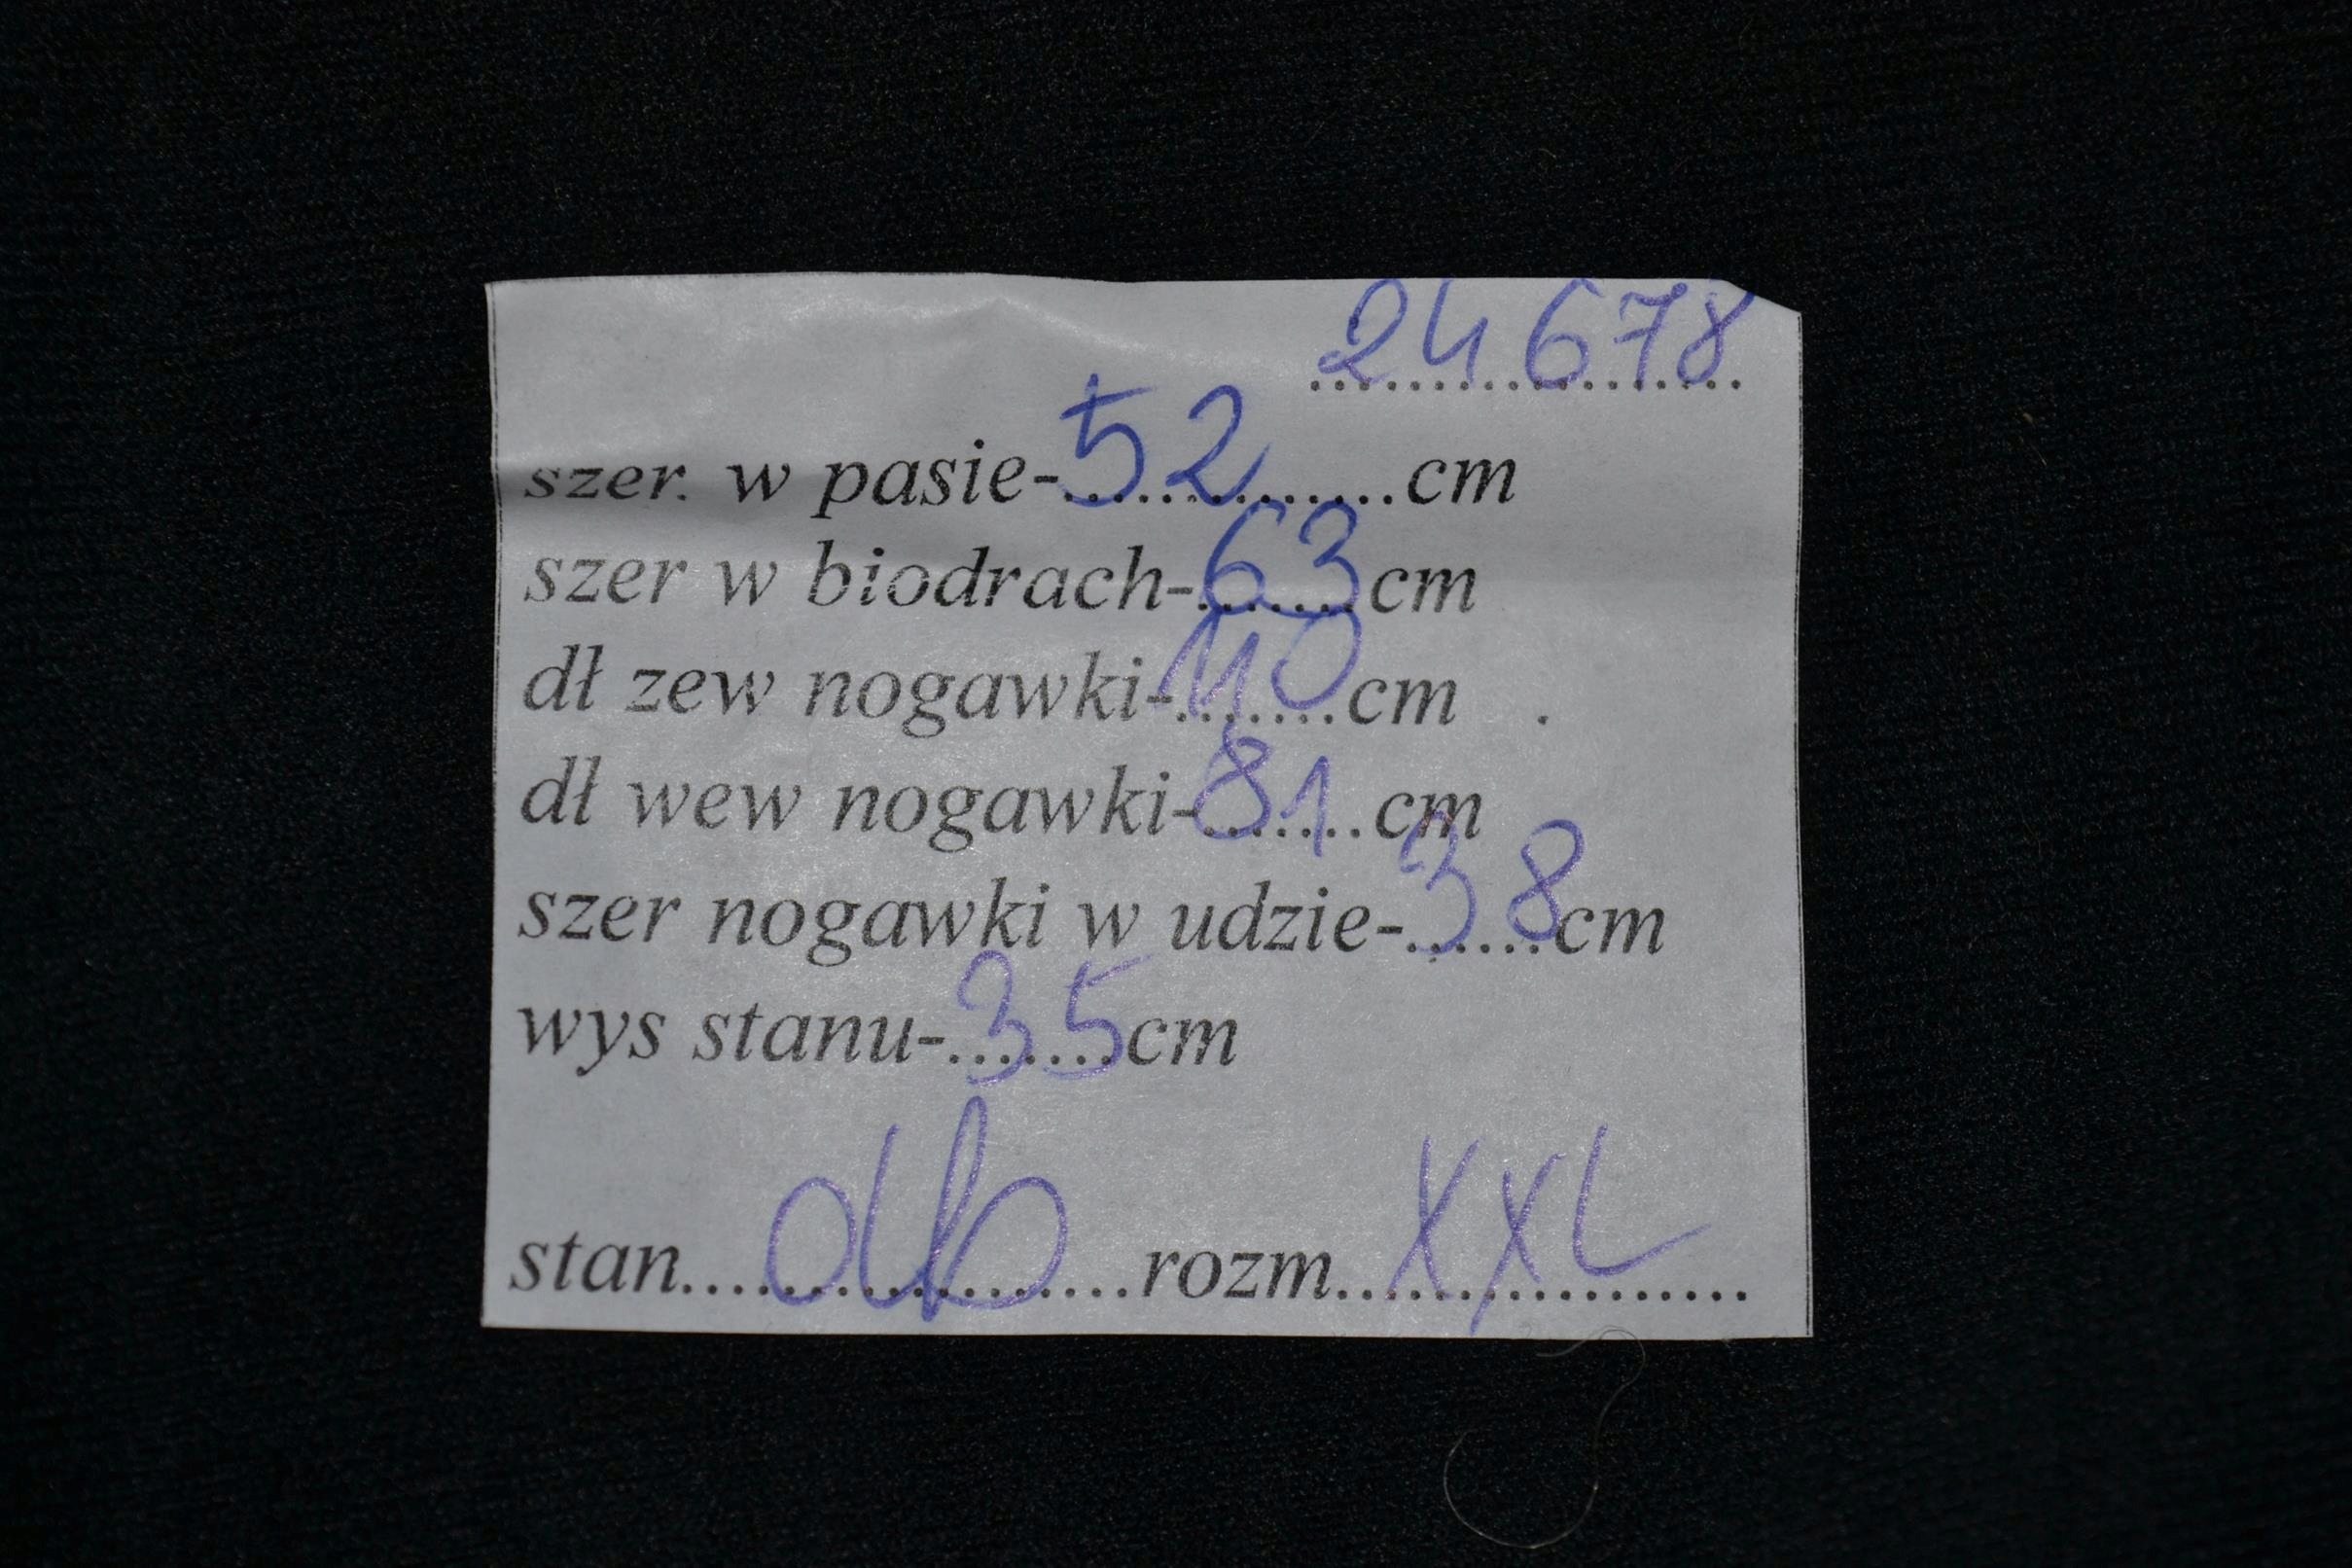 24 678
szer. w pasie-52..............cm
szer w biodrach-63.......cm
dł zew nogawki-110.......cm .
dł wew nogawki-81.......cm
szer nogawki w udzie-38......cm
wys stanu-35.......cm
stan....db....................rozm..XXL.................